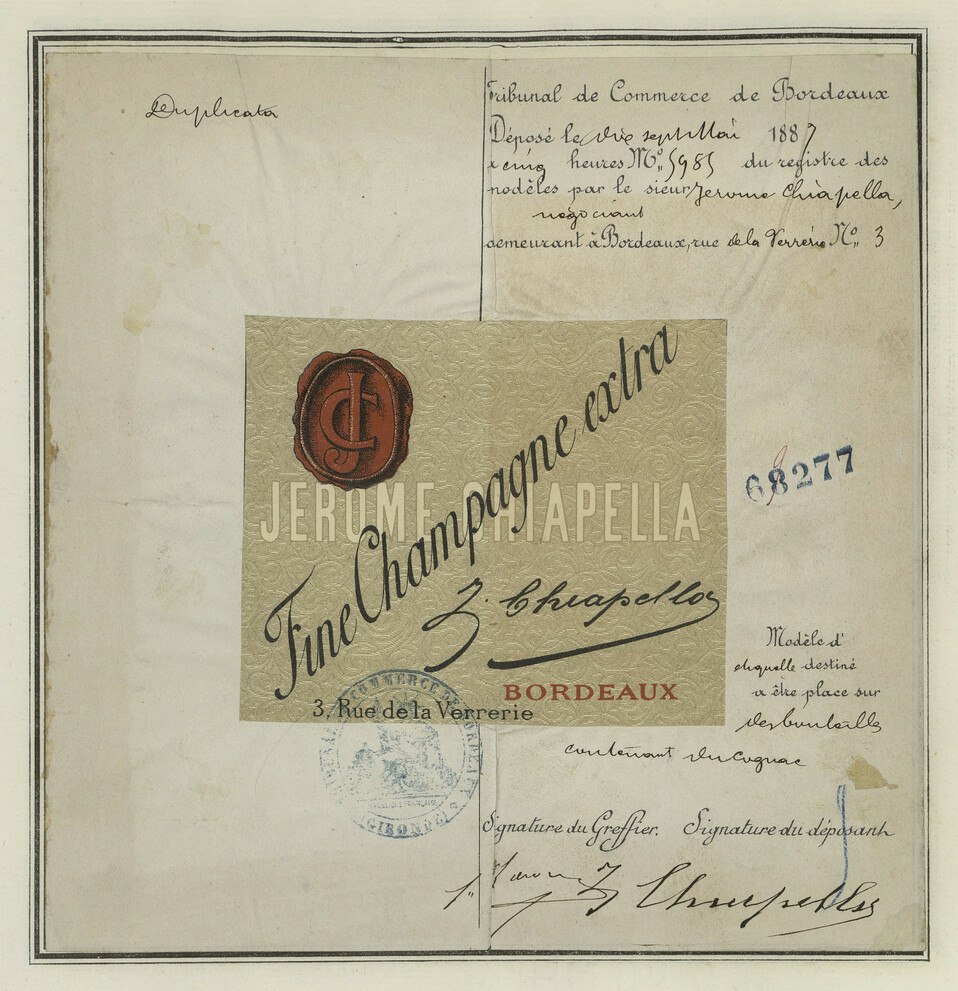 Duplicata
Tribunal de Commerce de Bordeaux
Déposé le dix sept Mai 1887
à cinq heures No 5985 du registre des
modèles par le sieur Jerome Chiapella,
négociant
demeurant à Bordeaux, rue de la Verrerie No 3
JC
Fine Champagne extra
JEROME CHIAPELLA
J. Chiapella
BORDEAUX
3, Rue de la Verrerie
68277
Modèle d'
etiquette destiné
a être place sur
des bouteilles
contenant du Cognac
COMMERCE DE BORDEAUX
GIRONDE
Signature du Greffier. Signature du déposant
J Chiapella